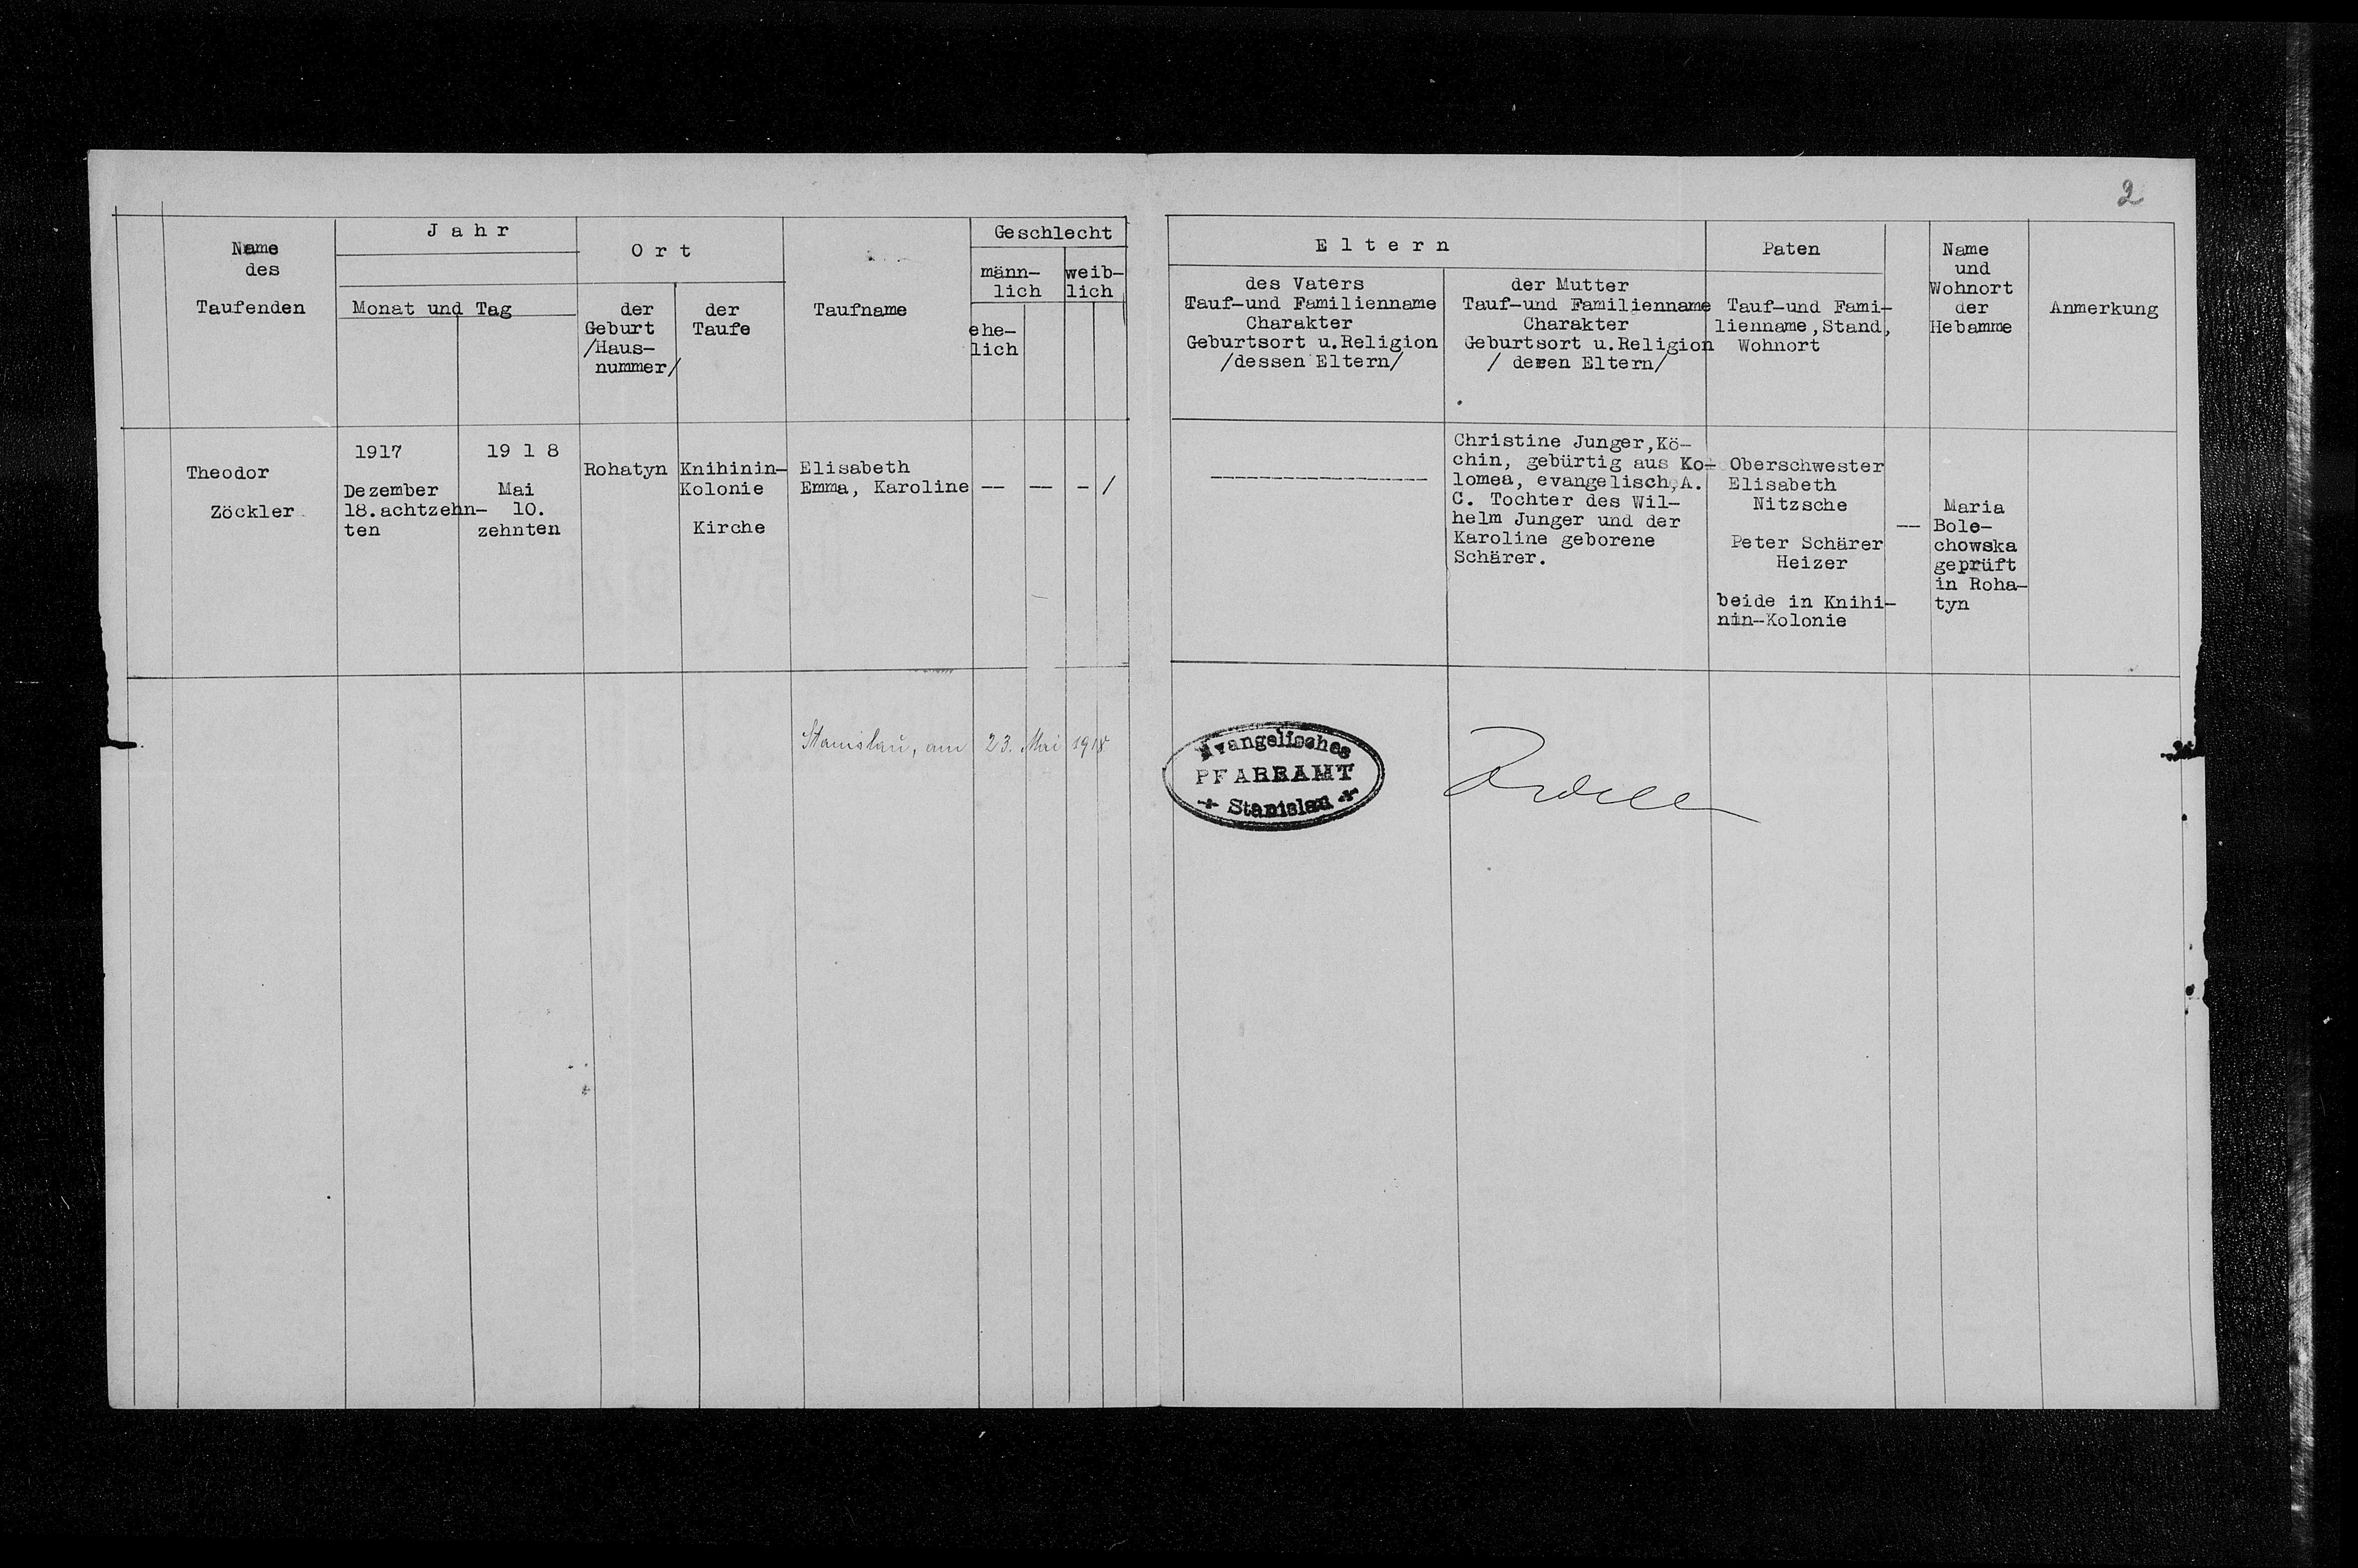 2
Name
des
Taufenden
J a h r
Monat und Tag
O r t
der
Geburt
/Haus-
nummer/
der
Taufe
Taufname
Geschlecht
männ-
lich
weib-
lich
ehe-
lich
E l t e r n
des Vaters
Tauf-und Familienname
Charakter
Geburtsort u.Religion
/dessen Eltern/
der Mutter
Tauf-und Familienname
Charakter
Geburtsort u.Religion
/ deren Eltern/
Paten
Tauf-und Fami-
lienname,Stand,
Wohnort
Name
und
Wohnort
der
Hebamme
Anmerkung
Theodor
Zöckler
1917
Dezember
18.achtzehn-
ten
19 1 8
Mai
10.
zehnten
Rohatyn
Knihinin-
Kolonie
Kirche
Elisabeth
Emma, Karoline
-- -- - /
--------------------
Christine Junger,Kö-
chin, gebürtig aus Ko-
lomea, evangelisch,A.
C. Tochter des Wil-
helm Junger und der
Karoline geborene
Schärer.
Oberschwester
Elisabeth
Nitzsche
Peter Schärer
Heizer
beide in Knihi-
nin-Kolonie
--
Maria
Bole-
chowska
geprüft
in Roha-
tyn
Stanislau, am 23. Mai 1918
Evangelisches
PFARRAMT
Stanislau